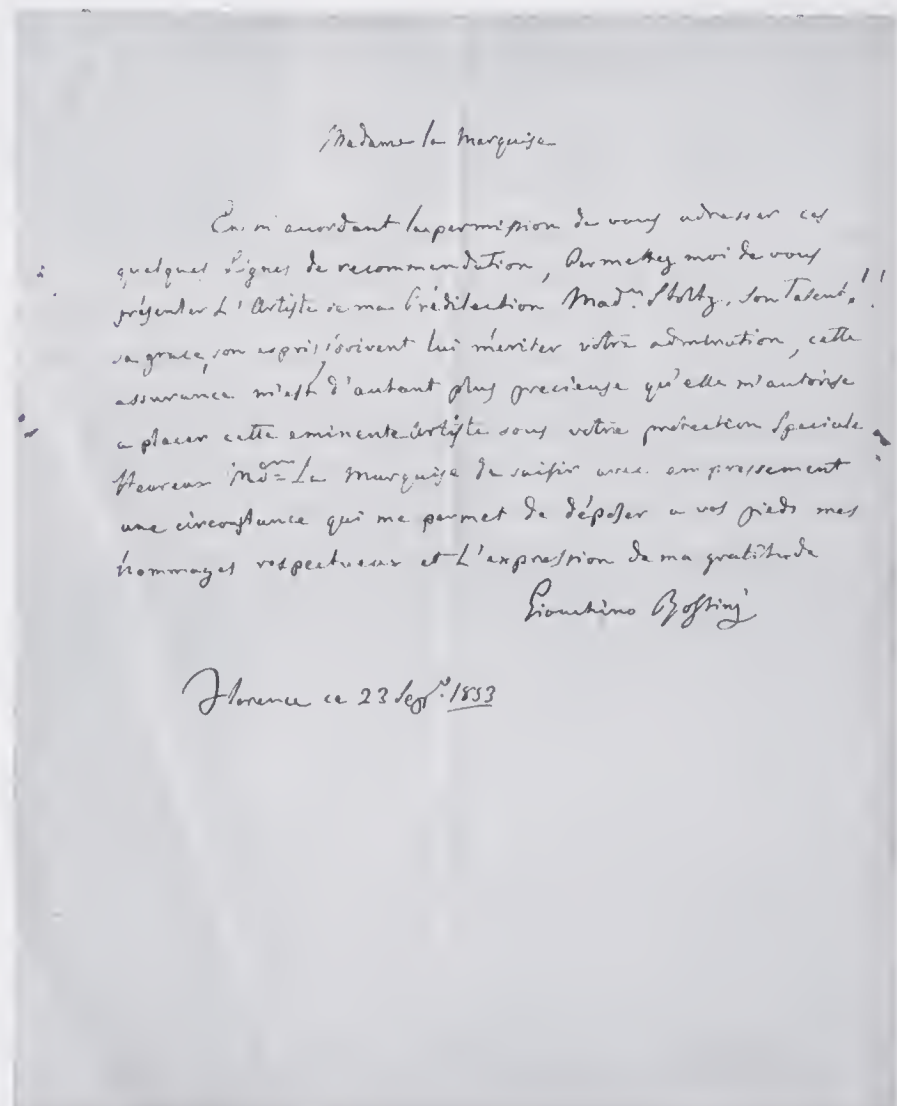 Madame la Marquise
En m'acordant la permission de vous adresser ces
quelques Lignes de recommendation, Permettez moi de vous
présenter L'Artiste de ma Prédilection Mad.e Stoltz. Son Talent!!
sa grace, son esprit doivent lui mériter votre admiration, cette
assurance m'est d'autant plus precieuse qu'elle m'autorise
a placer cette eminente Artiste sous votre protection Speciale
Heureux Mdme La Marquise de saisir avec empressement
une circonstance qui me permet de déposer a vos pieds mes
hommages respectueux et L'expression de ma gratitude
Giouchino Rossini
Florence ce 23 Sepre. 1853